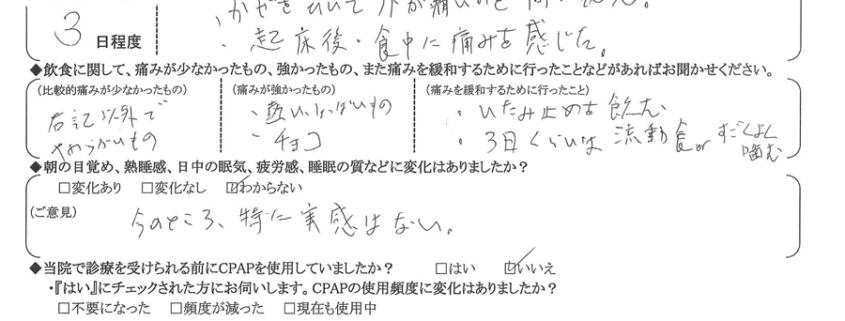 ・かぜをひいてノドが痛いのと同じ
3 日程度
・起床後・食中に痛みを感じた。
◆飲食に関して、痛みが少なかったもの、強かったもの、また痛みを緩和するために行ったことなどがあればお聞かせください。
(比較的痛みが少なかったもの)
右記以外で
やわらかいもの
(痛みが強かったもの)
・熱い、しょっぱいもの
・チョコ
(痛みを緩和するために行ったこと)
・いたみ止めを飲む
・3日くらいは流動食orすごくよく
噛む
◆朝の目覚め、熟睡感、日中の眠気、疲労感、睡眠の質などに変化はありましたか?
□変化あり □変化なし ☑わからない
(ご意見)
今のところ、特に実感はない。
◆当院で診療を受けられる前にCPAPを使用していましたか? □はい ☑いいえ
・『はい』にチェックされた方にお伺いします。CPAPの使用頻度に変化はありましたか?
□不要になった □頻度が減った □現在も使用中